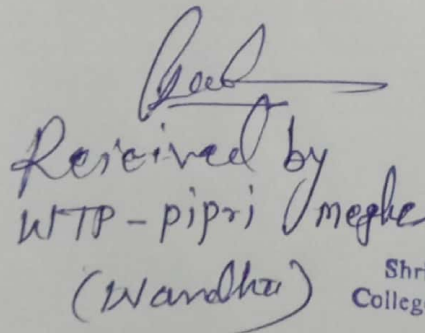 Reicived by
WTP - pipri meghe
(Wardha)
Shri
College